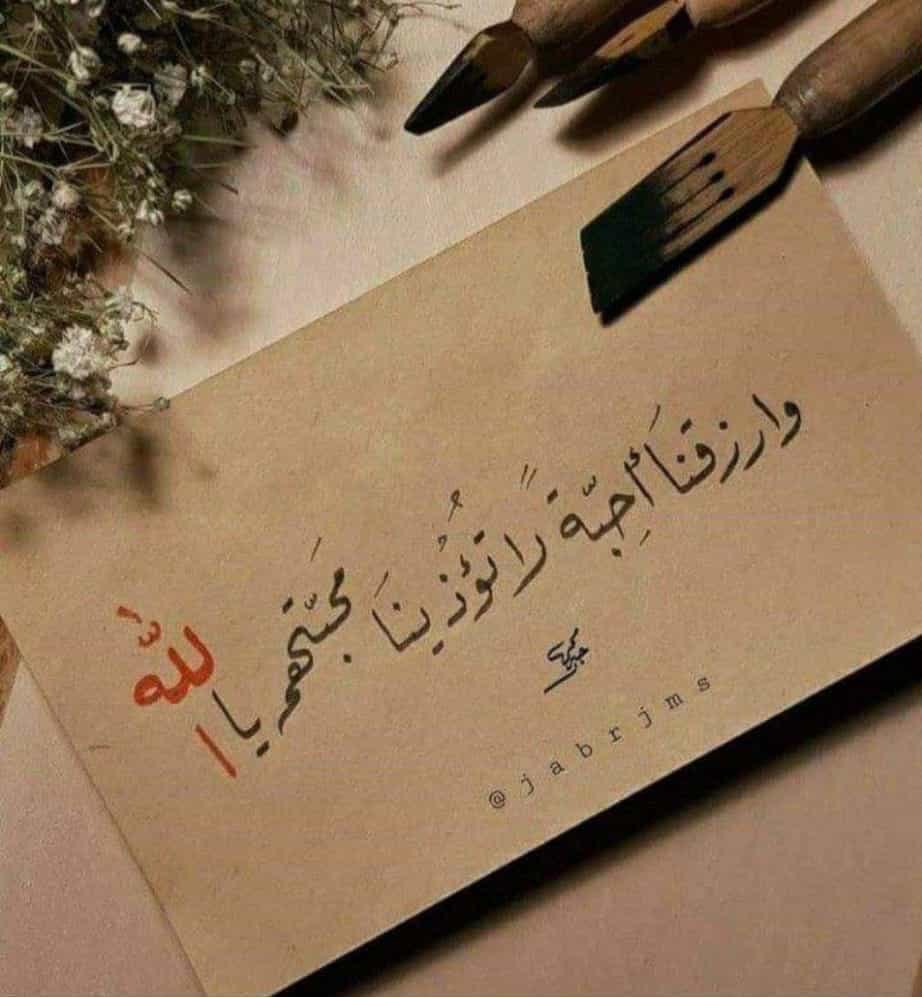 وارزقنا أَحِبّةً لا تُؤذينا محبّتهم يا اللّٰه
@jabrjms